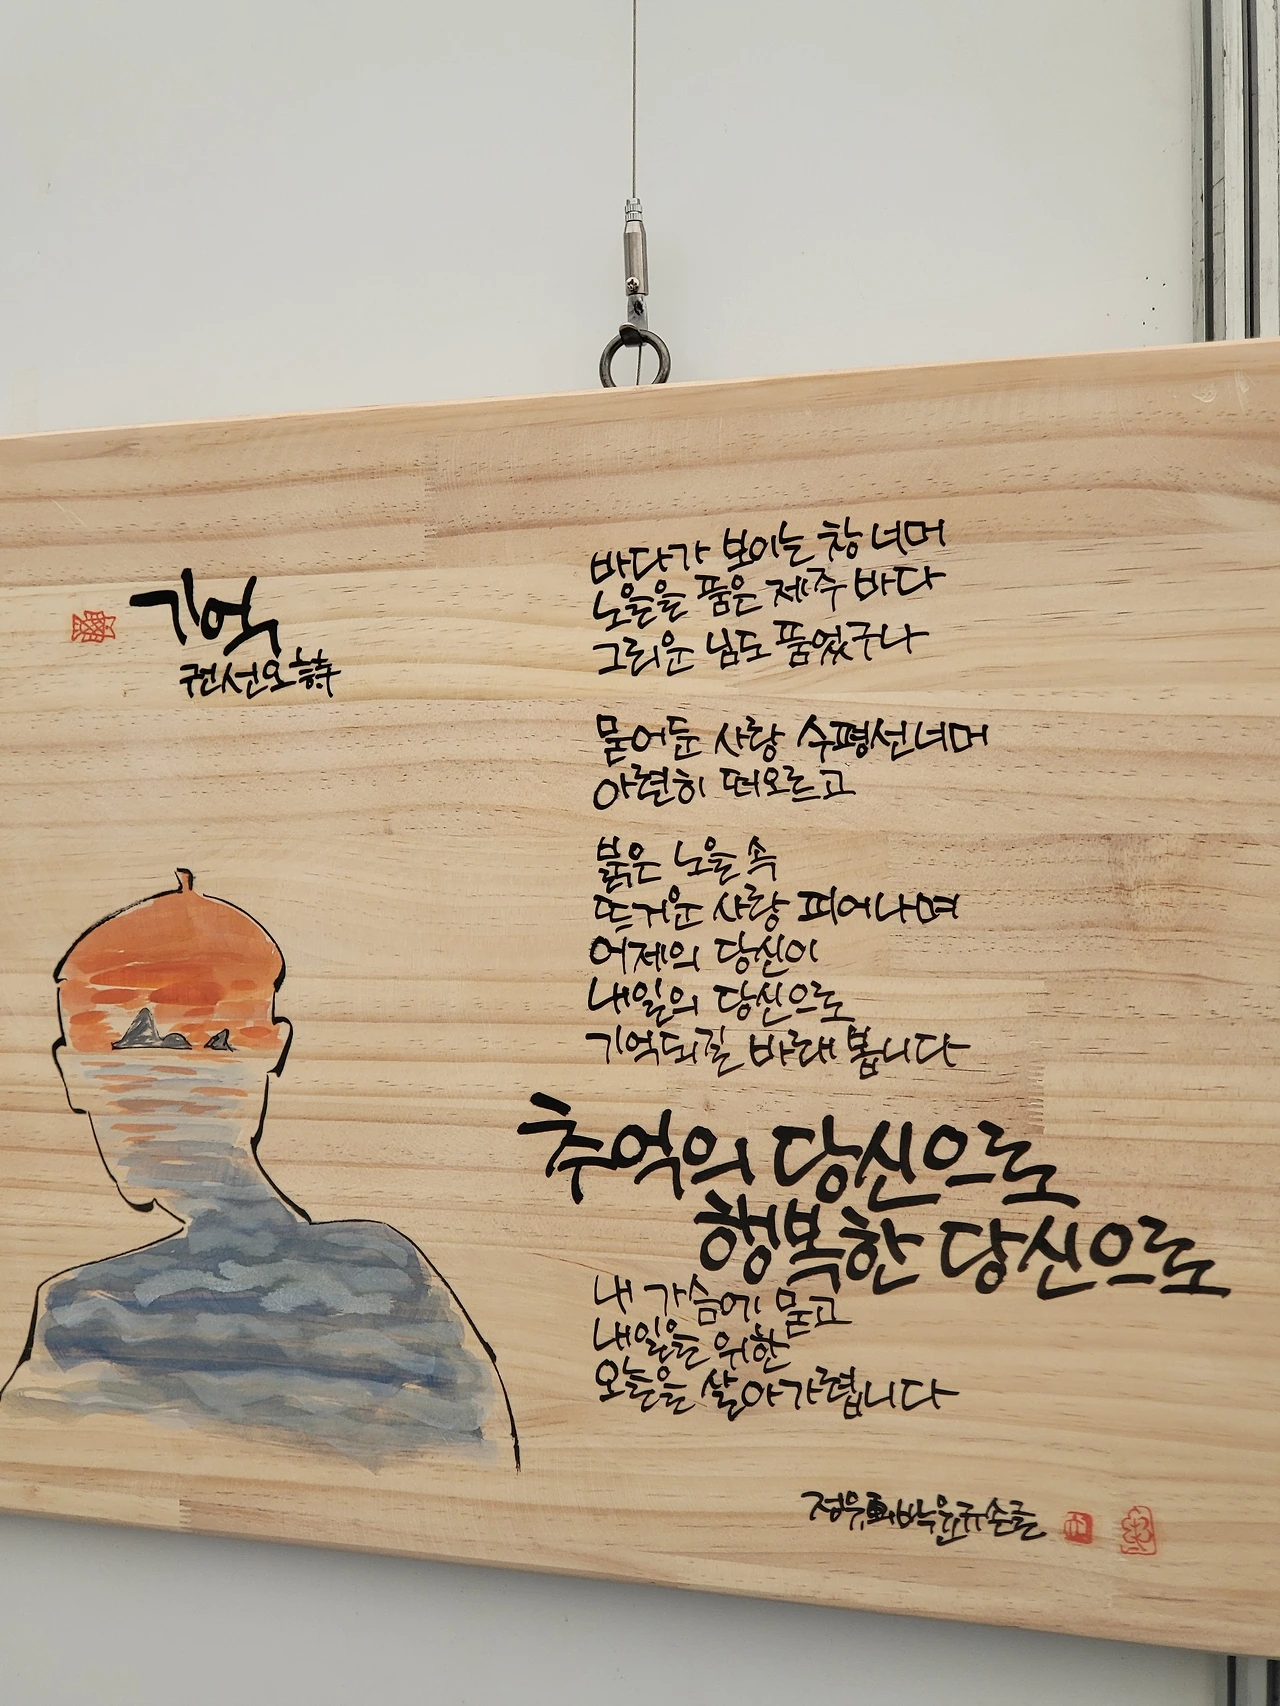 기억
권선오 詩
바다가 보이는 창 너머
노을을 품은 제주 바다
그리운 님도 품었구나
묻어둔 사랑 수평선 너머
아련히 떠오르고
붉은 노을 속
뜨거운 사랑 피어나며
어제의 당신이
내일의 당신으로
기억되길 바래 봅니다
추억의 당신으로
행복한 당신으로
내 가슴에 묻고
내일을 위한
오늘을 살아가렵니다
박윤규 손글